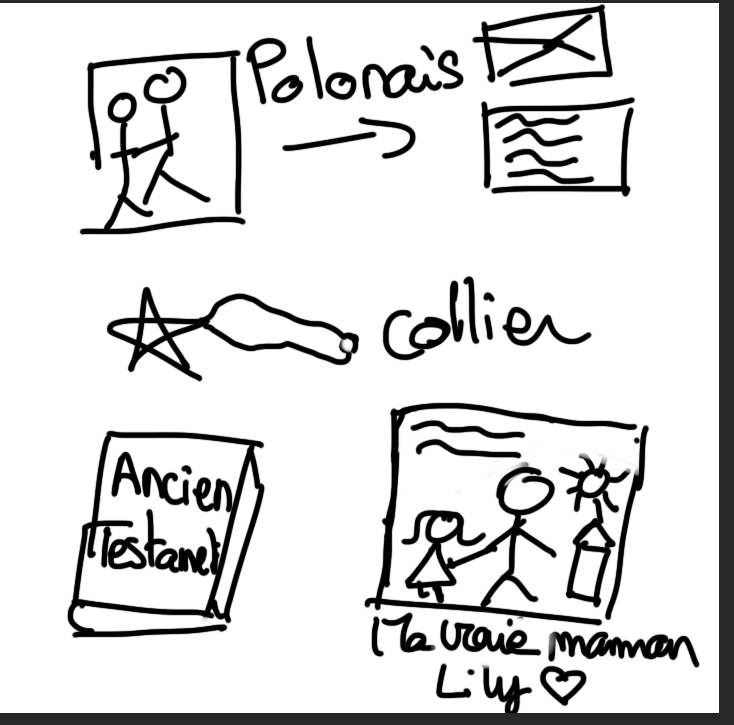 Polonais
collier
Ancien
Testanet
Ma vraie maman
Lily ♡